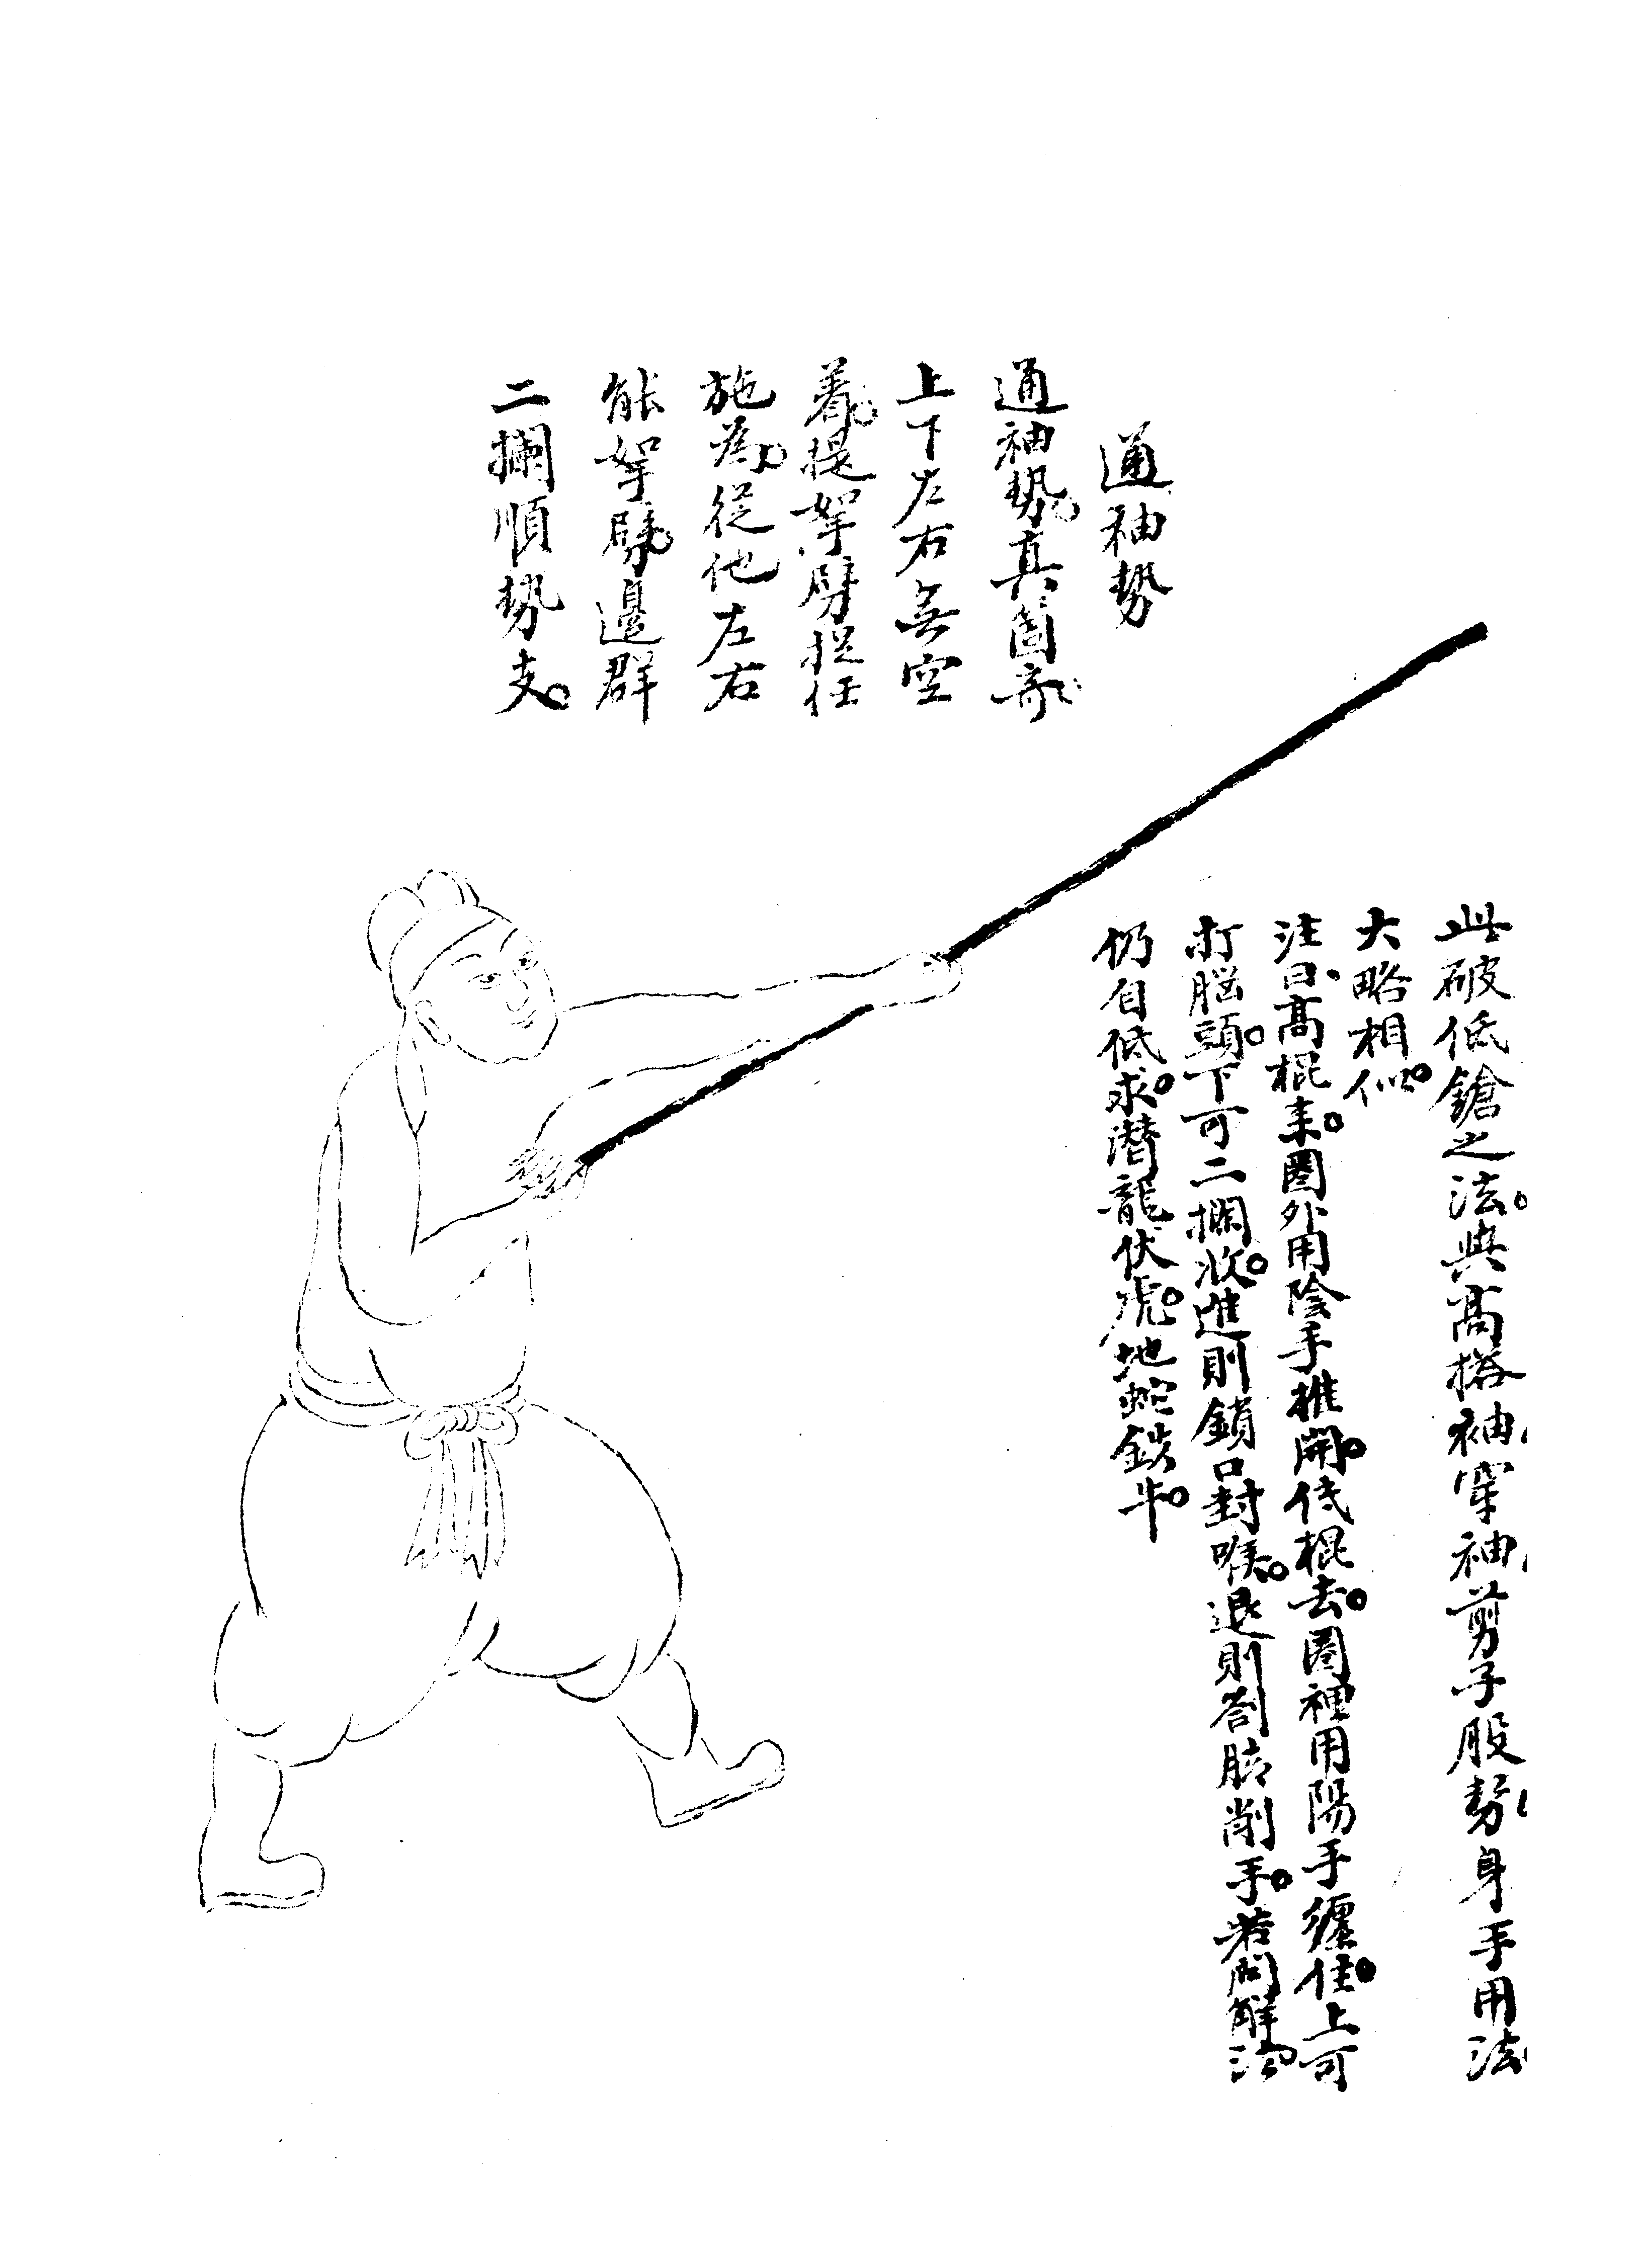 通袖勢
通袖勢。真箇奇。
上下左右無空
着。提拏劈捉任
施為。從他左右
能拏劈。邊群
二攔順勢支。
此破低鎗之法。與高搭袖、穿袖、剪子股勢、身手用法、
大略相似。
注曰、高棍來。圈外用陰手推開。低棍去。圈裡用陽手纏住。上可
打腦頭。下可二攔收。進則鎖口封喉。退則劄膝削手。若問解法。
仍自低求。潛龍伏虎。地蛇鉄牛。